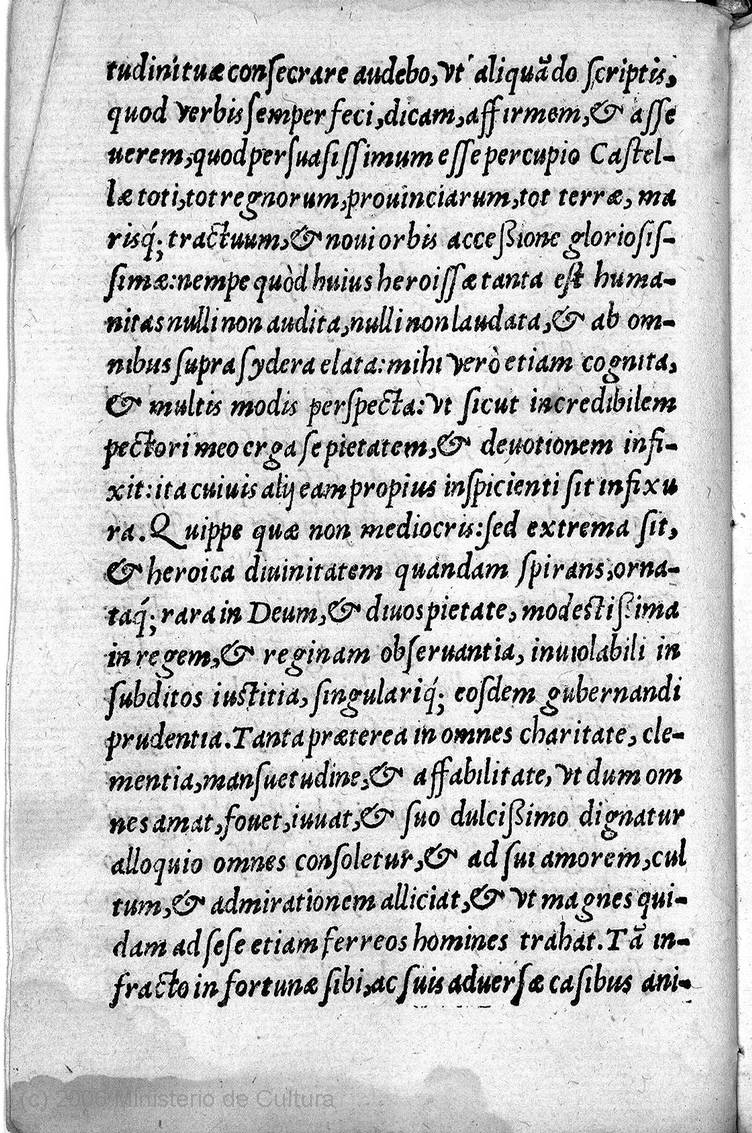 tudini tuæ consecrare audebo, vt aliquãdo scriptis,
quod verbis semper feci, dicam, affirmem, & asse
uerem, quod persuasissimum esse percupio Castel-
læ toti, tot regnorum, prouinciarum, tot terræ, ma
risq́; tractuum, & noui orbis acceßione gloriosis-
simæ: nempe quòd huius heroissæ tanta est huma-
nitas nulli non audita, nulli non laudata, & ab om-
nibus supra sydera elata: mihi verò etiam cognita,
& multis modis perspecta: vt sicut incredibilem
pectori meo erga se pietatem, & deuotionem infi-
xit: ita cuiuis alij eam propius inspicienti sit infixu
ra. Quippe quæ non mediocris: sed extrema sit,
& heroica diuinitatem quandam spirans, orna-
taq́; rara in Deum, & diuos pietate, modestißima
in regem, & reginam obseruantia, inuiolabili in
subditos iustitia, singulariq́; eosdem gubernandi
prudentia. Tanta præterea in omnes charitate, cle-
mentia, mansuetudine, & affabilitate, vt dum om
nes amat, fouet, iuuat, & suo dulcißimo dignatur
alloquio omnes consoletur, & ad sui amorem, cul
tum, & admirationem alliciat, & vt magnes qui-
dam ad sese etiam ferreos homines trahat. Tã in-
fracto in fortunæ sibi, ac suis aduersæ casibus ani-
(c) Ministerio de Cultura